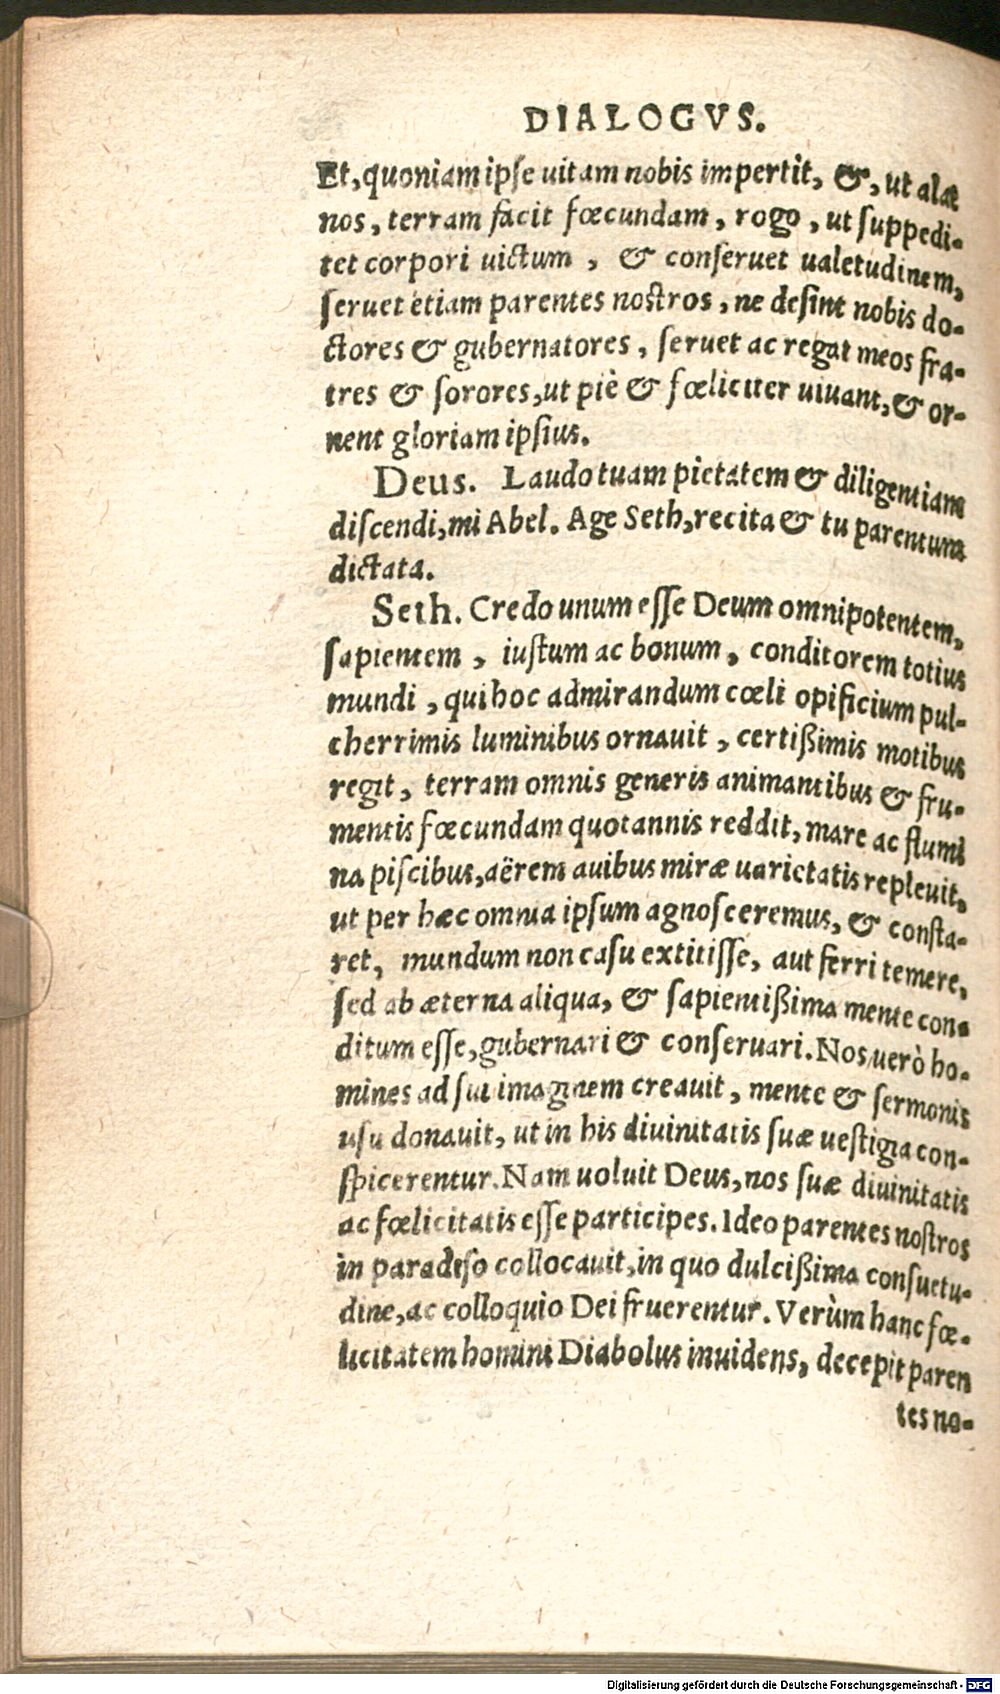 DIALOGVS.
Et, quoniam ipse uitam nobis impertit, &, ut alat
nos, terram facit fœcundam, rogo, ut suppedi-
tet corpori uictum, & conseruet ualetudinem,
seruet etiam parentes nostros, ne desint nobis do-
ctores & gubernatores, seruet ac regat meos fra-
tres & sorores, ut piè & fœliciter uiuant, & or-
nent gloriam ipsius.
Deus. Laudo tuam pietatem & diligentiam
discendi, mi Abel. Age Seth, recita & tu parentum
dictata.
Seth. Credo unum esse Deum omnipotentem,
sapientem, iustum ac bonum, conditorem totius
mundi, qui hoc admirandum cœli opificium pul-
cherrimis luminibus ornauit, certißimis motibus
regit, terram omnis generis animantibus & fru-
mentis fœcundam quotannis reddit, mare ac flumi
na piscibus, aërem auibus miræ uarietatis repleuit,
ut per hæc omnia ipsum agnosceremus, & consta-
ret, mundum non casu extitisse, aut ferri temere,
sed ab æterna aliqua, & sapientißima mente con-
ditum esse, gubernari & conseruari. Nos uerò ho-
mines ad sui imaginem creauit, mente & sermonis
usu donauit, ut in his diuinitatis suæ uestigia con-
spicerentur. Nam uoluit Deus, nos suæ diuinitatis
ac fœlicitatis esse participes. Ideo parentes nostros
in paradiso collocauit, in quo dulcißima consuetu-
dine, ac colloquio Dei fruerentur. Verùm hanc fœ-
licitatem homini Diabolus inuidens, decepit paren
tes no-
Digitalisierung gefördert durch die Deutsche Forschungsgemeinschaft - DFG